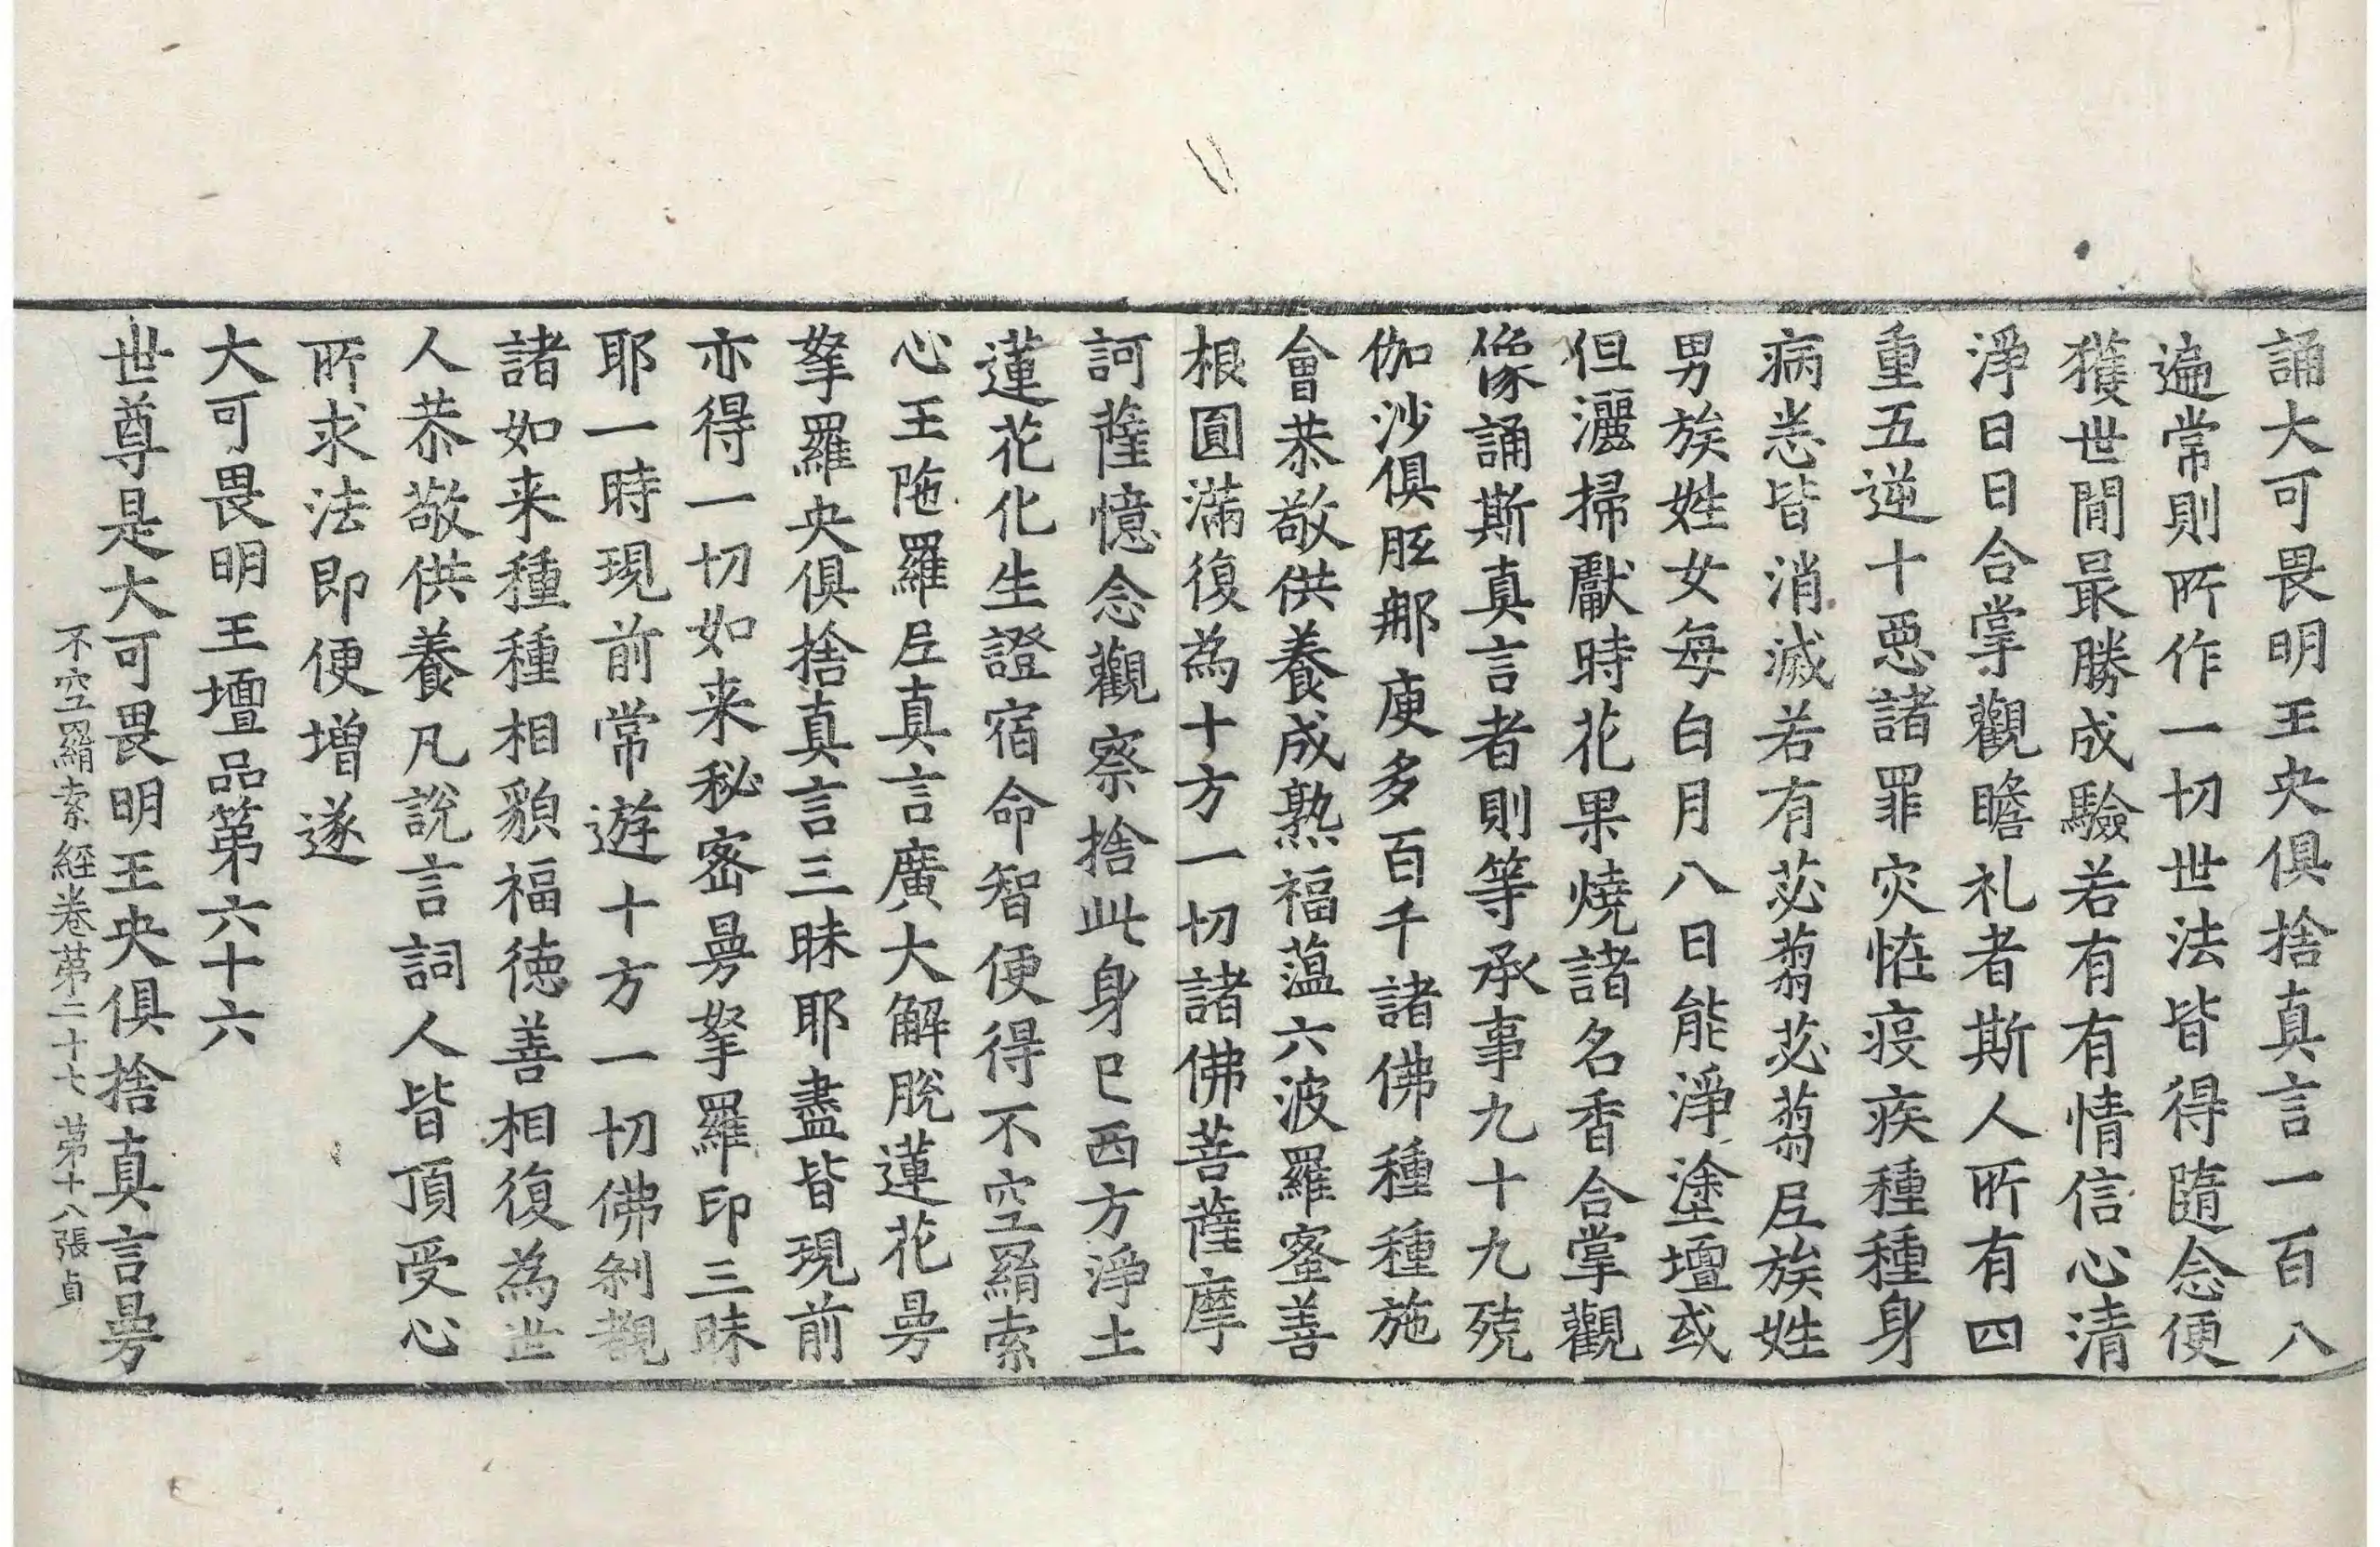 誦大可畏明王央俱捨真言一百八
遍常則所作一切世法皆得隨念便
獲世間最勝成驗若有有情信心清
淨日日合掌觀瞻礼者斯人所有四
重五逆十惡諸罪灾恠疫疾種種身
病恙皆消滅若有苾蒭苾蒭尼族姓
男族姓女每白月八日能淨塗壇或
但灑掃獻時花果燒諸名香合掌觀
像誦斯真言者則等承事九十九殑
伽沙俱胝那庾多百千諸佛種種施
會恭敬供養成熟福蘊六波羅蜜善
根圓滿復為十方一切諸佛菩薩摩
訶薩憶念觀察捨此身已西方淨土
蓮花化生證宿命智便得不空羂索
心王陁羅尼真言廣大解脫蓮花曼
拏羅央俱捨真言三昧耶盡皆現前
亦得一切如来秘密曼拏羅印三昧
耶一時現前常遊十方一切佛剎觀
諸如来種種相貌福德善相復為世
人恭敬供養凡說言詞人皆頂受心
所求法即便增遂
大可畏明王壇品第六十六
世尊是大可畏明王央俱捨真言曼
不空羂索經卷第二十七 第十八張 貞